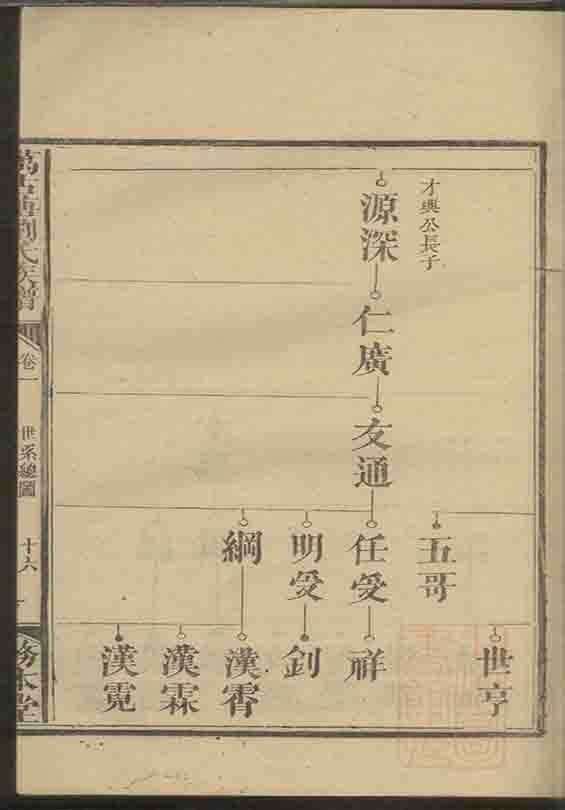 才興公長子
源深
仁廣
友通
五哥
任受
明受
綱
世亨
祥
釗
漢霄
漢霖
漢霓
劉氏族譜
卷一
世系總圖
十六
務本堂